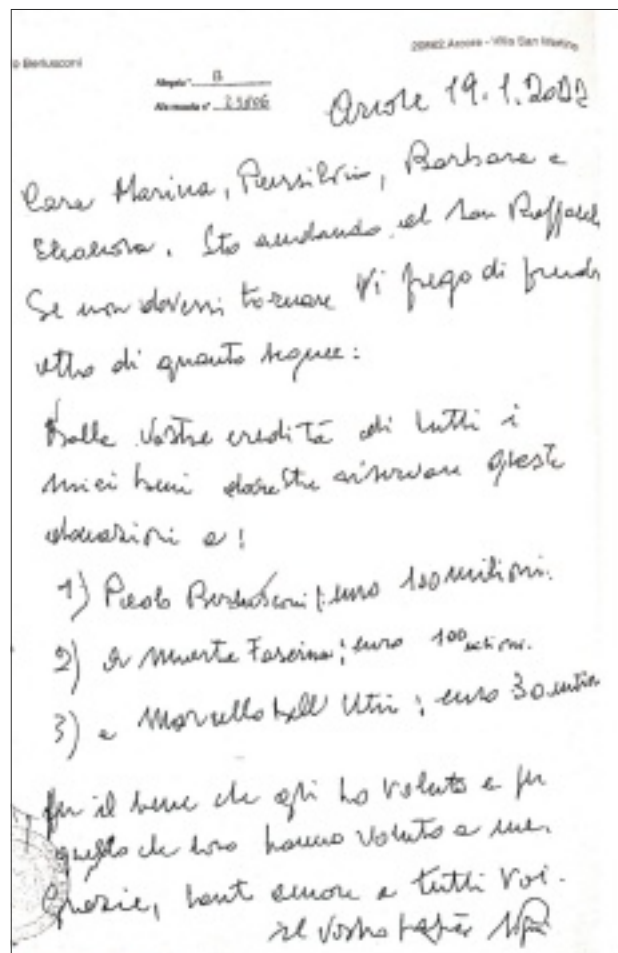 o Berlusconi
20862 Arcore - Villa San Martino
Allegato "B
Alla raccolta n° 23806
Arcore 19.1.2022
Cara Marina, Piersilvio, Barbara e
Eleonora, Sto andando al San Raffael
Se non dovessi tornare Vi prego di prende
atto di quanto segue:
Dalla Vostra eredità di tutti i
miei beni dovreste riservare queste
donazioni a:
1) Paolo Berlusconi; euro 100 milioni.
2) a Marta Fascina; euro 100 milioni.
3) a Marcello Dell'Utri; euro 30 milion
per il bene che gli ho voluto e per
quello che loro hanno voluto a me.
Grazie, tanto amore a tutti Voi.
il Vostro papà